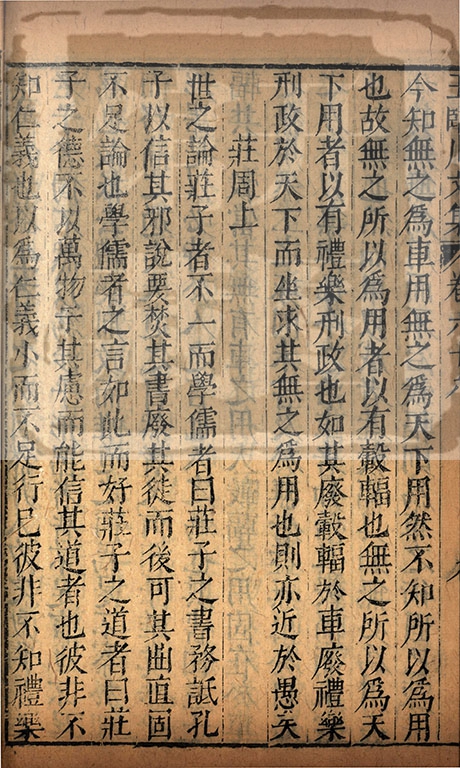 王臨川文集 卷六十八
今知無之為車用無之為天下用然不知所以為用
也故無之所以為用者以有轂輻也無之所以為天
下用者以有禮樂刑政也如其廢轂輻於車廢禮樂
刑政於天下而坐求其無之為用也則亦近於愚矣
莊周上
世之論莊子者不一而學儒者曰莊子之書務詆孔
子以信其邪說要焚其書廢其徒而後可其曲直固
不足論也學儒者之言如此而好莊子之道者曰莊
子之德不以萬物干其慮而能信其道者也彼非不
知仁義也以為仁義小而不足行已彼非不知禮樂